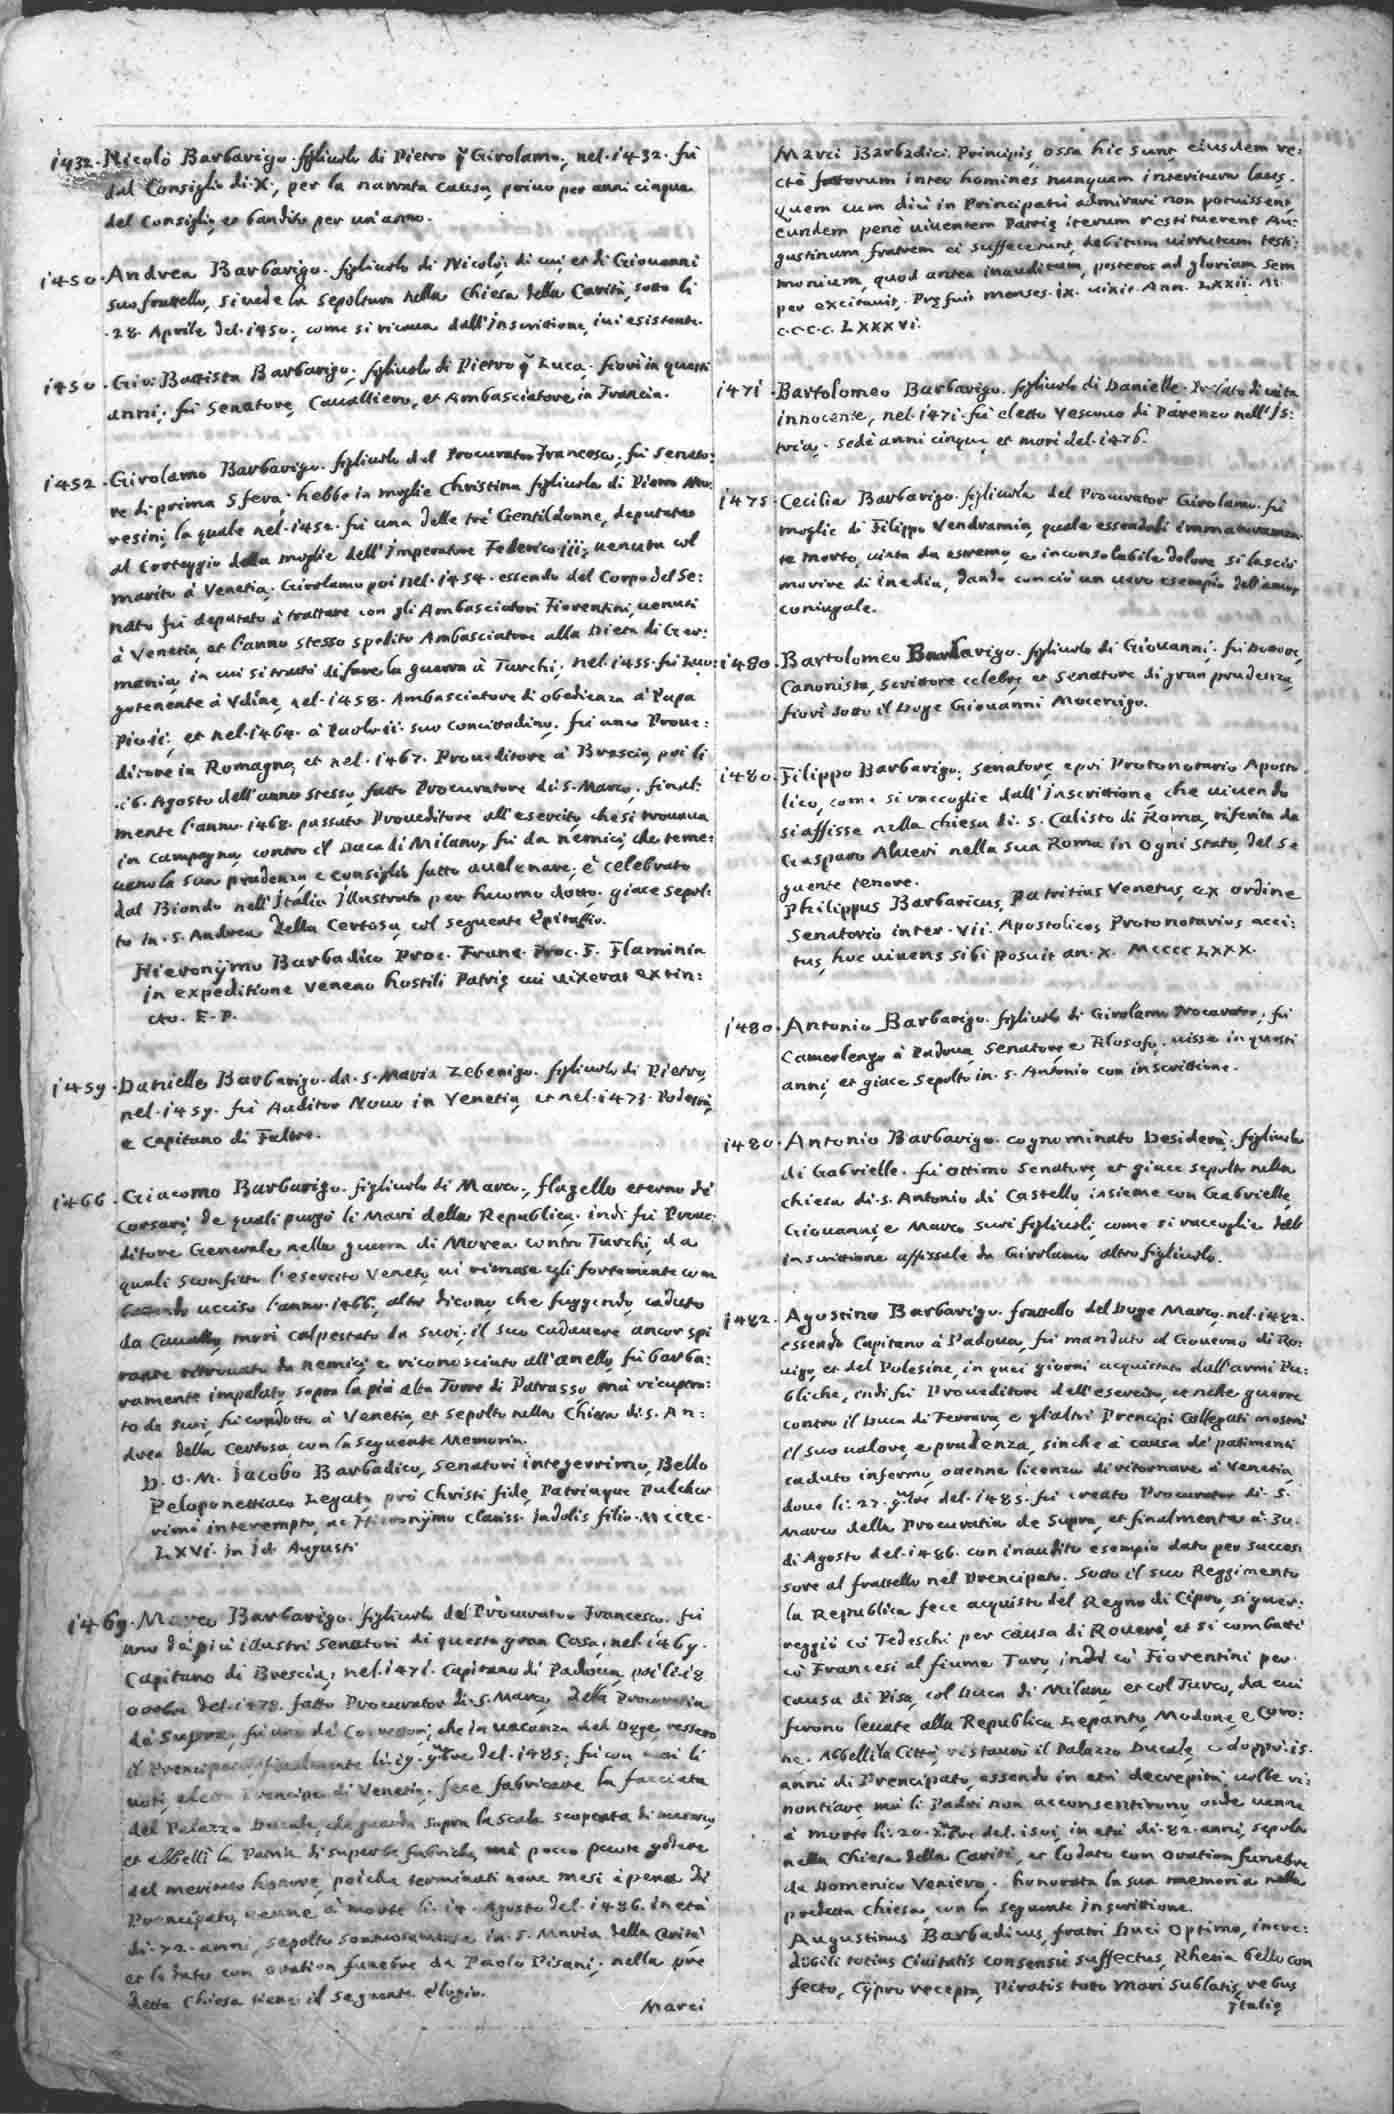 1432. Nicolò Barbarigo. figliuolo di Pietro q Girolamo, nel. 1432. fù
dal Consiglio di. X., per la narrata causa, privo per anni cinque
del Consiglio, et bandito per un'anno.
1450. Andrea Barbarigo. figliuolo di Nicolò; di cui, et di Giovanni
suo frattello, si vede la sepoltura nella Chiesa della Carità, sotto li
.28. Aprile del. 1450., come si ricava dall'Inscrittione, ivi esistente.
1450. Gio: Battista Barbarigo, figliuolo di Pietro q Luca. fiorì in questi
anni. fù Senatore, Cavalliero, et Ambasciatore in Francia.
1452. Girolamo Barbarigo. figliuolo del Procurator Francesco, fù Senato:
re di prima Sfera. hebbe in moglie Christina figliuola di Pietro Mo:
resini, la quale nel. 1452. fù una delle trè Gentildonne, deputate
al Corteggio della moglie dell'Imperatore Federico iii, venuta col
marito à Venetia. Girolamo poi nel. 1454. essendo del Corpo del Se:
nato fù deputato à trattare con gli Ambasciatori Fiorentini, venuti
à Venetia, et l'anno stesso spedito Ambasciatore alla Dieta di Ger:
mania, in cui si trattò di fare la guerra à Turchi, nel. 1455. fù Luo:
gotenente à Udine, nel. 1458. Ambasciatore di obedienza à Papa
Pio. ii., et nel. 1464. à Paolo. ii. suo Concittadino. fù anco Prove:
ditore in Romagna, et nel. 1467. Proveditore à Brescia, poi li
.16. Agosto dell'anno stesso, fatto Procuratore di. S. Marco. final:
mente l'anno. 1468. passato Proveditore all'esercito, che si trovava
in Campagna, contro il Duca di Milano, fù da nemici, che teme:
vano la sua prudenza e consiglio fatto avelenare; è celebrato
dal Biondo nell'Italia Illustrata per huomo dotto. giace sepol:
to in. S. Andrea della Certosa, col seguente Epitaffio.
Hieronÿmo Barbadico Proc. Franc. Proc. F. Flaminia
in expeditione veneno hostili Patriȩ cui vixerat extin:
cto. E. P.
1459. Danielle Barbarigo. da. S. Maria Zebenigo. figliuolo di Pietro,
nel. 1459. fù Auditor Novo in Venetia, et nel. 1473. Podestà,
e Capitano di Feltre.
1466. Giacomo Barbarigo. figliuolo di Marco, flagello eterno de'
Corsari, de quali purgò li Mari della Republica. indi fù Prove:
ditore Generale nella guerra di Morea contro Turchi, da
quali sconfitto l'esercito Veneto, vi rimase egli fortemente com
battendo ucciso l'anno. 1466. altri dicono, che fuggendo, caduto
da Cavallo, morì calpestato da suoi. il suo cadavere ancor spi
rante ritrovato da nemici, e riconosciuto all'anello, fù barba:
ramente impalato, sopra la più alta Torre di Patrasso, mà ricupera:
to da suoi, fù condotto à Venetia, et sepolto nella Chiesa di. S. An:
drea della Certosa con la seguente Memoria.
D. O. M. Jacobo Barbadico, Senatori integerrimo, Bello
Peloponettiaco Legato, prò Christi fide, Patriaque Pulcher
rimè interempto, ac Hieronÿmo clariss. Indolis filio. MCCCC.
LXVI. in id. Augusti
1469. Marco Barbarigo. figliuolo del Procurator Francesco. fù
uno de' più illustri Senatori di questa gran Casa. nel. 1469.
Capitano di Brescia, nel. 1471. Capitano di Padova, poi li. 18
del. 1478. fatto Procurator di. S. Marco, della Procuratia
de Supra, fù uno de' Correttori, che in vacanza del Doge, ressero
il Prencipato, finalmente li. 19. 9bre del. 1485. fù con li
voti, eletto Prencipe di Venetia. fece fabricare la facciata
del Palazzo Ducale, che guarda sopra la scala scoperta di marmo,
et abbellì la Patria di superbe fabriche, mà pocco puote godere
del meritato honore, poiche terminati nove mesi à pena di
Prencipato, venne à morte li. 14. Agosto del. 1486. in età
di. 72. anni, sepolto sontuosamente in. S. Maria della Carità
et lodato con oration funebre da Paolo Pisani; nella pre
detta Chiesa tiene il seguente elogio.
Marci
Marci Barbadici Principis ossa hic sunt, eiusdem re:
ctè factorum inter homines nunquam interitura laus.
quem cum diù in Principatù admirari non potuissent,
eundem penè viventem Patriȩ iterum restituerent Au:
gustinum fratrem ei suffecerunt, debitum virtutum testi:
monium, quod antea inauditum, posteros ad gloriam sem
per excitavit. Prȩfuit menses. ix. vixit. Ann. LXXII. M
C.C.C.C. LXXXVI.
1471. Bartolomeo Barbarigo. figliuolo di Danielle. Prelato di vita
innocente, nel. 1471. fù eletto Vescovo di Parenzo nell'Is:
tria. sedè anni cinque, et morì del. 1476.
1475. Cecilia Barbarigo. figliuola del Procurator Girolamo. fù
moglie di Filippo Vendramin, quale essendoli immaturamen
te morto, vinta da estremo, e inconsolabile dolore si lasciò
morire di inedia, dando conciò un vero esempio dell'amor
coniugale.
1480. Bartolomeo Barbarigo. figliuolo di Giovanni. fù Dottore,
Canonista, scrittore celebre, et Senatore di gran prudenza,
fiorì sotto il Doge Giovanni Mocenigo.
1480. Filippo Barbarigo, Senatore, e poi Protonotario Aposto
lico, come si raccoglie dall'Inscrittione, che vivendo
si affisse nella Chiesa di. S. Calisto di Roma, riferita da
Gasparo Alveri nella sua Roma in ogni stato, del se
guente tenore.
Philippus Barbaricus, Patritius Venetus, ex ordine
Senatorio inter. VII. Apostolicos Protonotarios acci:
tus, hoc vivens sibi posuit an. X. MCCCCLXXX.
1480. Antonio Barbarigo. figliuolo di Girolamo Procurator, fù
Camerlengo à Padova, Senatore e Filosofo. visse in questi
anni, et giace sepolto in. S. Antonio con inscrittione.
1480. Antonio Barbarigo. cognominato Desiderà. figliuolo
di Gabrielle. fù ottimo Senatore, et giace sepolto nella
chiesa di. S. Antonio di Castello, insieme con Gabrielle,
Giovanni, e Marco suoi figliuoli, come si raccoglie dall'
inscrittione affissale da Girolamo altro figliuolo.
1482. Agostino Barbarigo. frattello del Doge Marco. nel. 1482.
essendo Capitano à Padova, fù mandato al Governo di Ro:
vigo, et del Polesine, in quei giorni acquistato dall'armi Pu:
bliche, indi fù Proveditore dell'esercito, et nelle guerre
contro il Duca di Ferrara, e gl'altri Prencipi Collegati mostrò
il suo valore, e prudenza, sinche à causa de' patimenti
caduto infermo, ottenne licenza di ritornare à Venetia,
dove li. 27. 9bre del. 1485. fù creato Procurator di. S.
Marco della Procuratia de Supra, et finalmente à. 30.
di Agosto del. 1486. con inaudito esempio dato per succes
sore al frattello nel Prencipato. Sotto il suo Reggimento
la Republica fece acquisto del Regno di Cipro, si guer:
reggiò cò Tedeschi per causa di Roverè, et si combattè
cò Francesi al fiume Taro, indi cò Fiorentini per
causa di Pisa, col Duca di Milano, et col Turco, da cui
furono levate alla Republica Lepanto, Modone, e Coro:
ne. Abbellì la Città, restaurò il Palazzo Ducale, e doppo. 15.
anni di Prencipato, essendo in età decrepita, volle ri:
nontiare, mà li Padri non acconsentirono, onde venne
à morte li. 20. 7bre del. 1501, in età di. 82. anni, sepolto
nella Chiesa della Carità, et lodato con oration funebre
da Domenico Veniero. honorata la sua memoria nella
predetta Chiesa, con la seguente Inscrittione.
Augustinus Barbadicus, fratri Duci Optimo, incre:
dibili totius Civitatis consensù suffectus, Rhetia bello con
fecto, Cÿpro recepta, Piratis toto Mari sublatis, rebus
Italiȩ